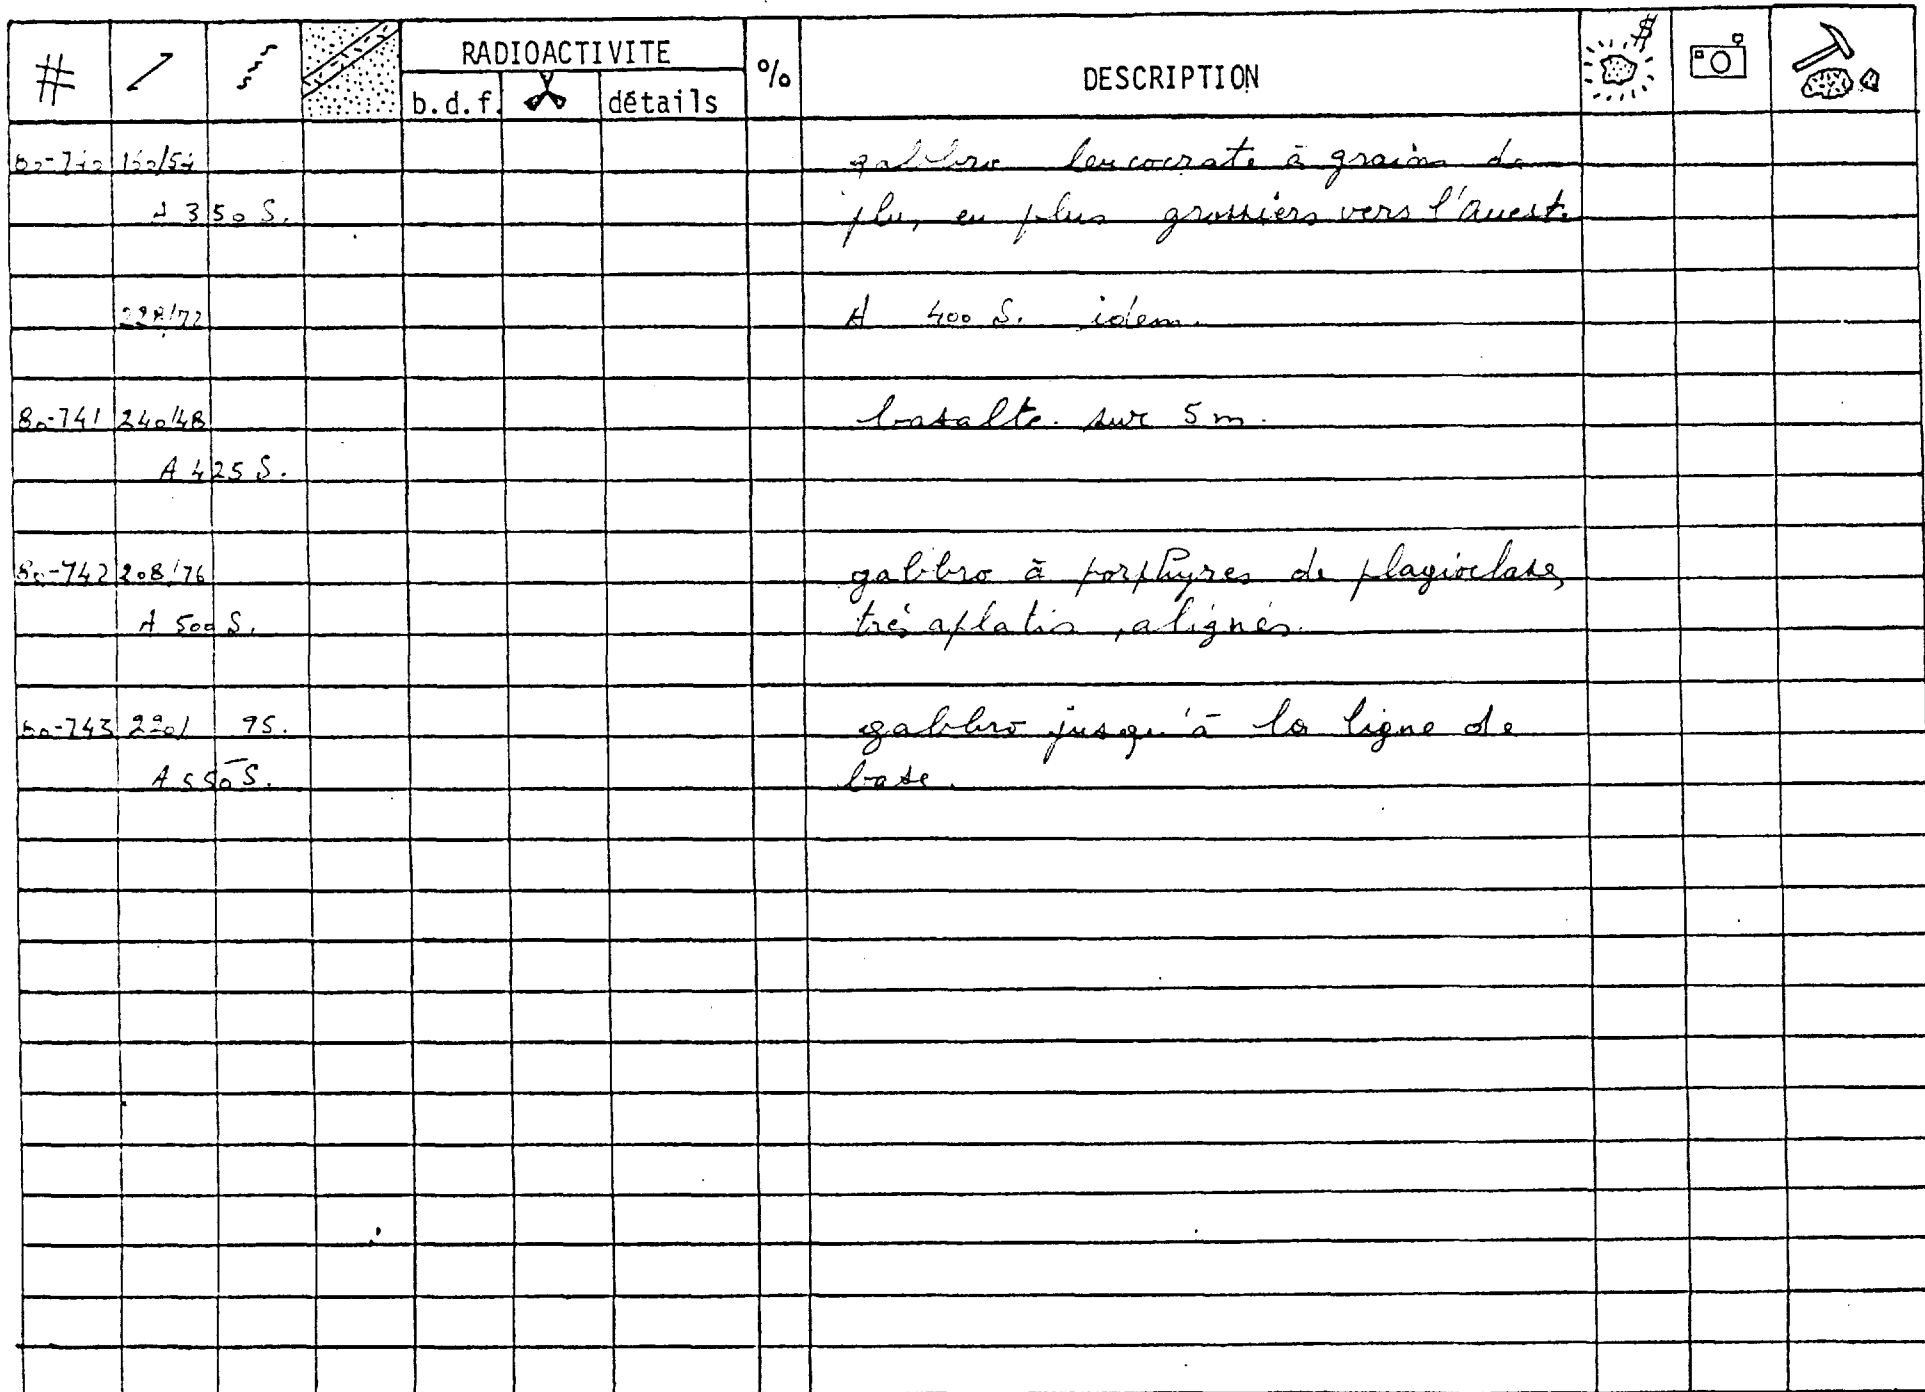 # RADIOACTIVITE % DESCRIPTION $
b.d.f. détails
80-740 gabbro leucocrate à grains de
A 350 S. plus en plus grossiers vers l'ouest.
228/72 A 400 S. idem.
80-741 240/48 basalte sur 5 m.
A 425 S.
80-742 208/76 gabbro à porphyres de plagioclase,
A 500 S. très aplatis, alignés.
80-743 220/ 75. gabbro jusqu'à la ligne de
A 550 S. base.